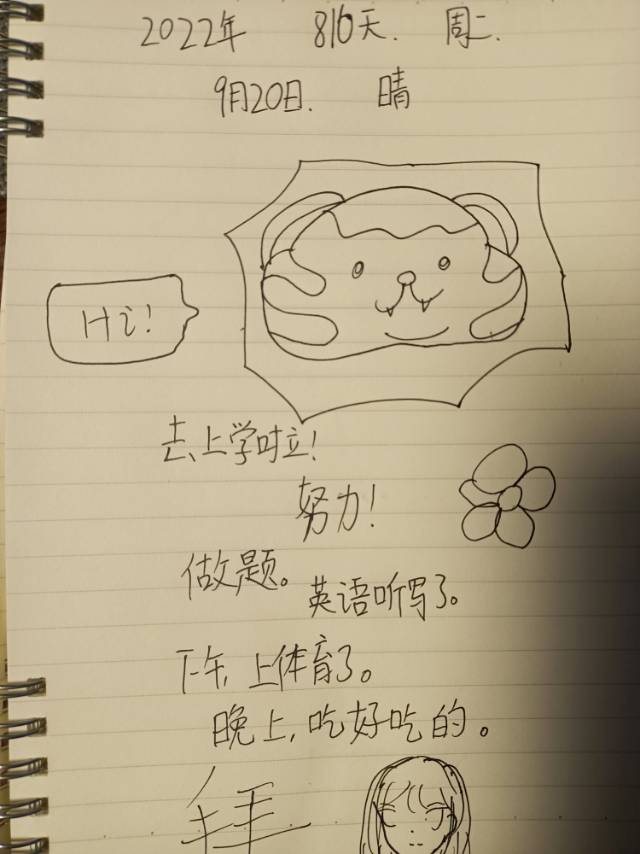 2022年 816天. 周二.
9月20日. 晴
Hi!
去上学啦!
努力!
做题。
英语听写了。
下午, 上体育了。
晚上, 吃好吃的。
拜